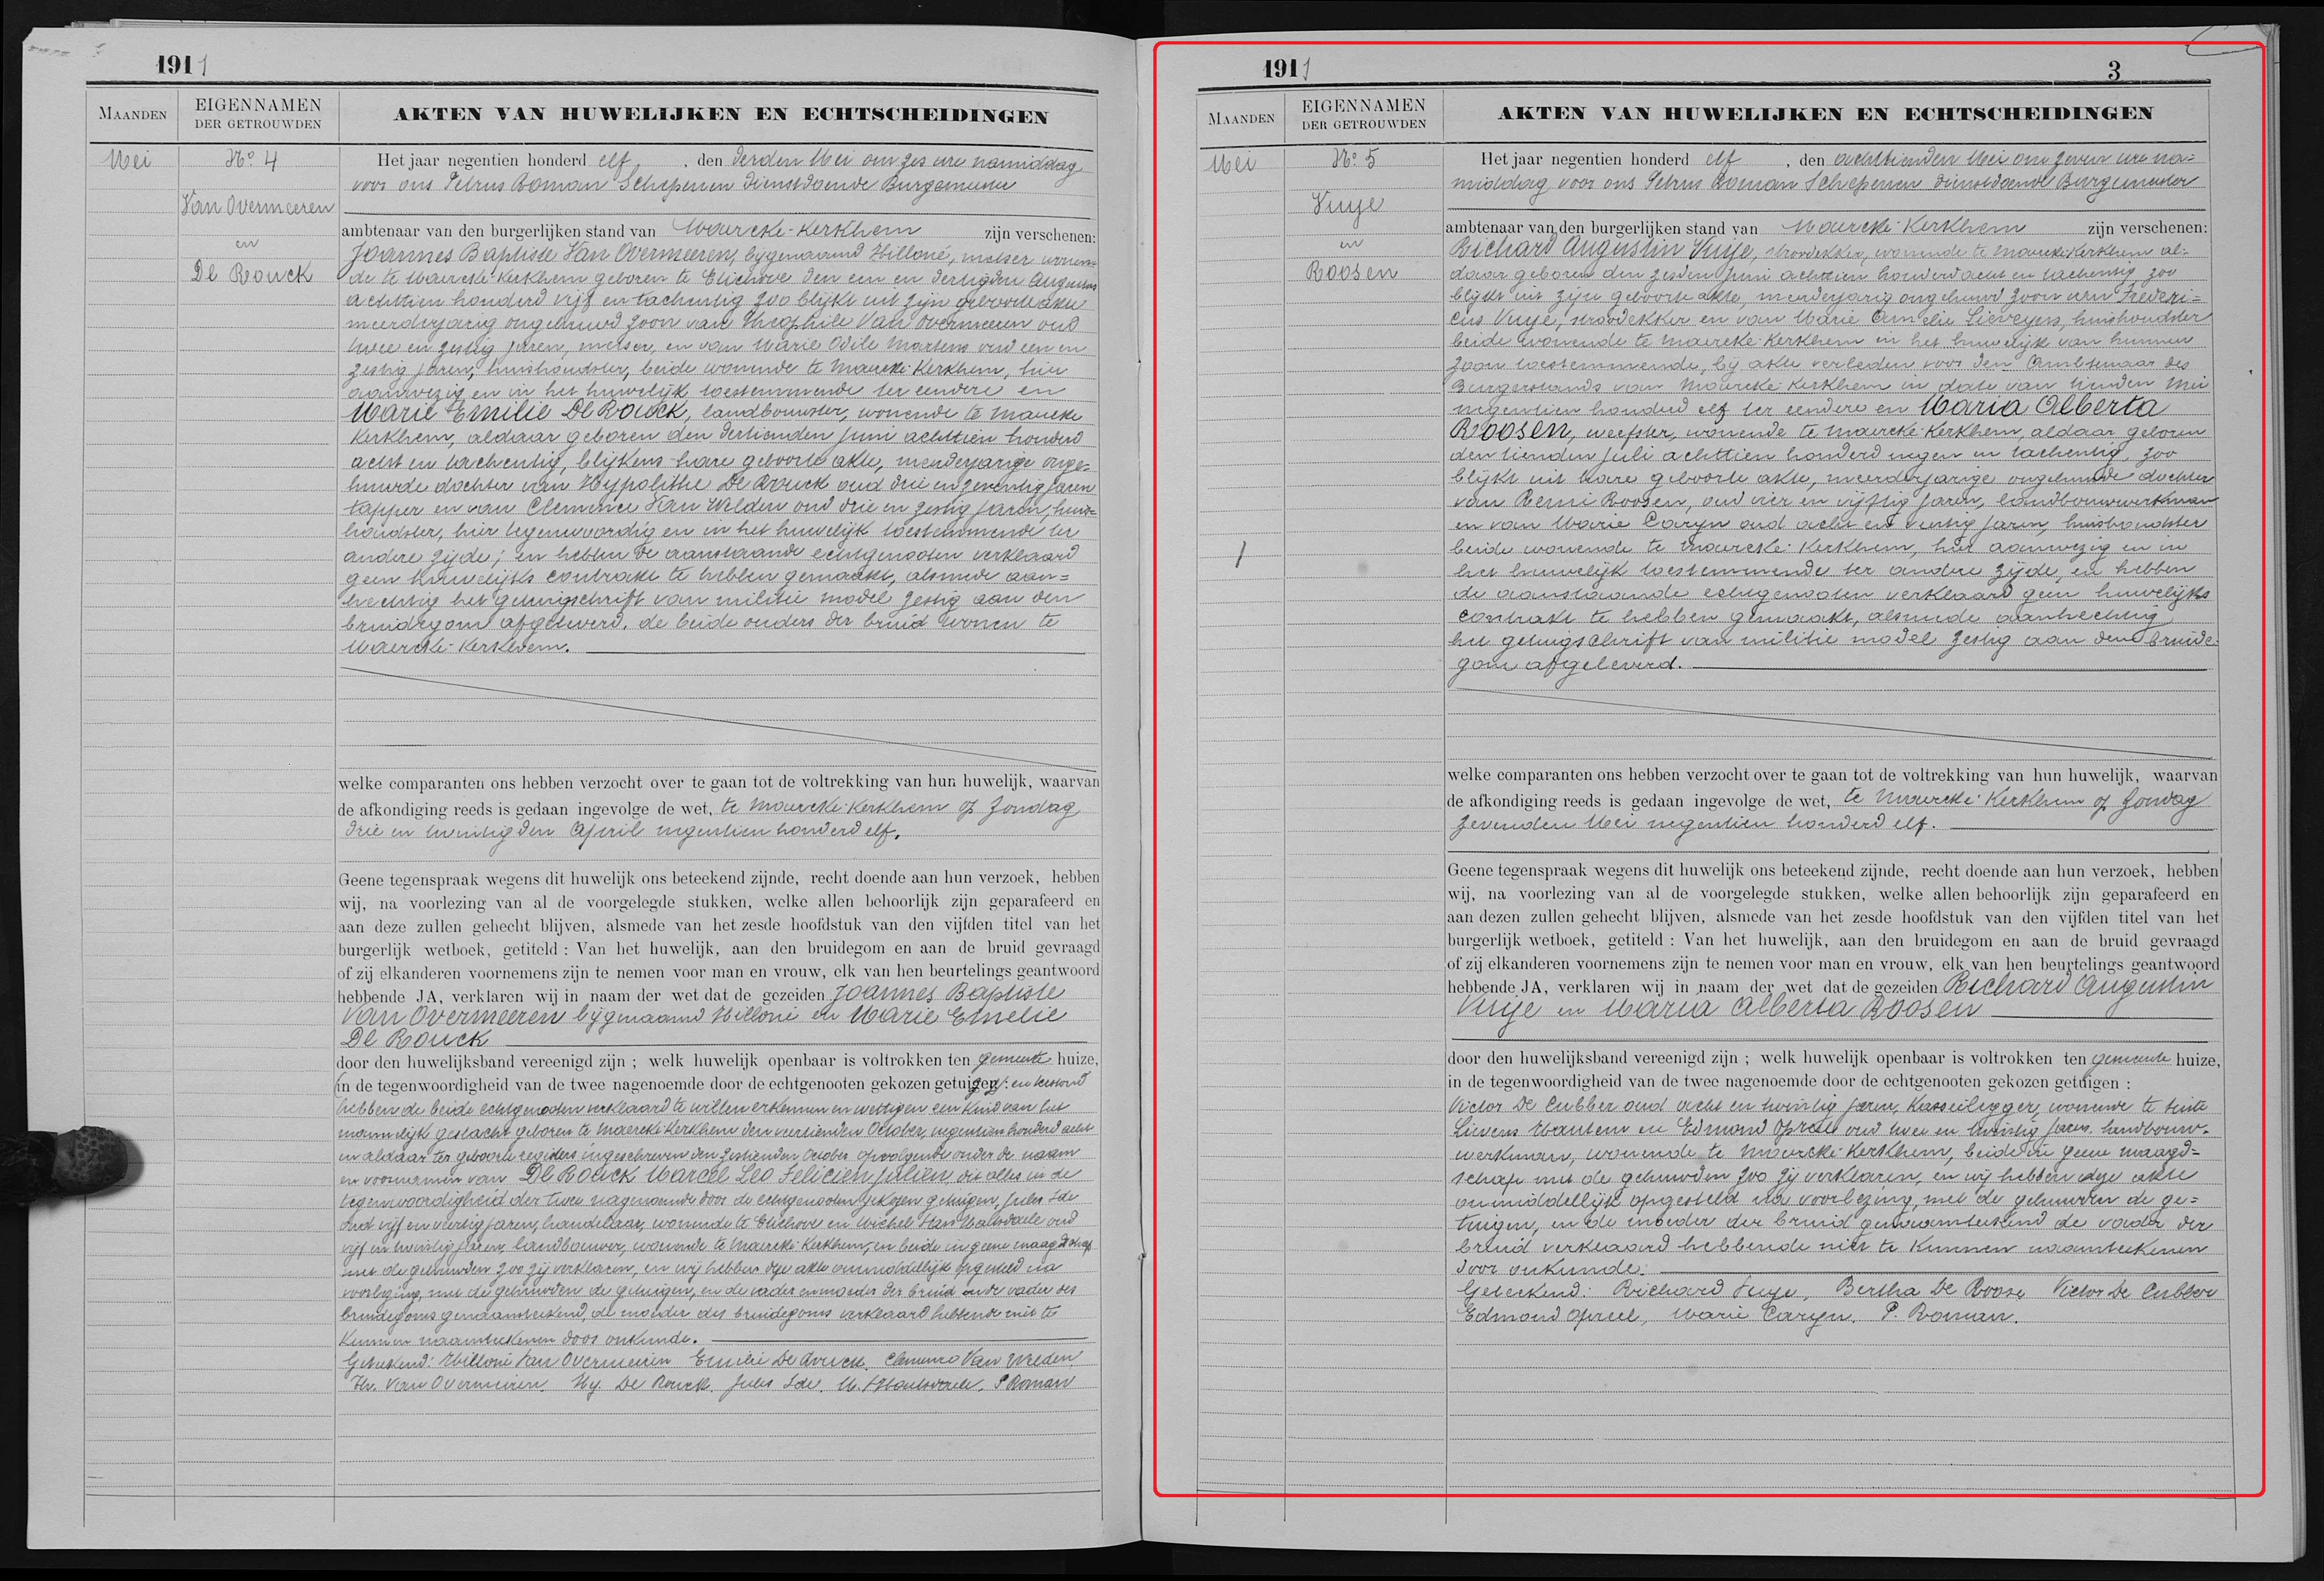 1911
MAANDEN
EIGENNAMEN
DER GETROUWDEN
AKTEN VAN HUWELIJKEN EN ECHTSCHEIDINGEN
Mei
No 4
Van Overmeeren
en
De Rouck
Het jaar negentien honderd elf, den derden Mei om zes ure namiddag
voor ons Petrus Roman Schepenen dienstdoende Burgemeester
ambtenaar van den burgerlijken stand van Maercke-Kerkhem zijn verschenen:
Joannes Baptiste Van Overmeeren, bijgenaamd Hilloné, metser wonen-
de te Maercke-Kerkhem geboren te Etichove den een en dertigden Augustus
achttien honderd vijf en tachentig zoo blijkt uit zijn geboorteakte
meerderjarig ongehuwd zoon van Theophile Van Overmeeren oud
twee en zestig jaren, metser, en van Marie Odile Martens oud een en
zestig jaren, huishoudster, beide wonende te Maercke-Kerkhem, hier
aanwezig en in het huwelijk toestemmende ter eendere en
Marie Emilie De Rouck, landbouwster, wonende te Maercke
Kerkhem, aldaar geboren den dertienden Juni achttien honderd
acht en tachentig, blijkens hare geboorte akte, meerderjarige onge-
huwde dochter van Hypolithe De Rouck oud drie en zeventig jaren
tapper en van Clemence Van Welden oud drie en zestig jaren, huis-
houdster, hier tegenwoordig en in het huwelijk toestemmende ter
andere zijde; en hebben de aanstaande echtgenooten verklaard
geen huwelijks contrakt te hebben gemaakt, alsmede aan=
hechtig het getuigschrift van militie model zestig aan den
bruidegom afgeleverd. de beide ouders der bruid wonen te
Maercke-Kerkhem.
welke comparanten ons hebben verzocht over te gaan tot de voltrekking van hun huwelijk, waarvan
de afkondiging reeds is gedaan ingevolge de wet, te Maercke-Kerkhem op Zondag
drie en twintigden April negentien honderd elf.
Geene tegenspraak wegens dit huwelijk ons beteekend zijnde, recht doende aan hun verzoek, hebben
wij, na voorlezing van al de voorgelegde stukken, welke allen behoorlijk zijn geparafeerd en
aan deze zullen gehecht blijven, alsmede van het zesde hoofdstuk van den vijfden titel van het
burgerlijk wetboek, getiteld : Van het huwelijk, aan den bruidegom en aan de bruid gevraagd
of zij elkanderen voornemens zijn te nemen voor man en vrouw, elk van hen beurtelings geantwoord
hebbende JA, verklaren wij in naam der wet dat de gezeiden Joannes Baptiste
Van Overmeeren bijgenaamd Hilloné en Marie Emelie
De Rouck
door den huwelijksband vereenigd zijn ; welk huwelijk openbaar is voltrokken ten gemeente huize,
in de tegenwoordigheid van de twee nagenoemde door de echtgenooten gekozen getuigen: en terstond
hebben de beide echtgenooten verklaard te willen erkennen en wettigen een kind van het
mannelijk geslacht geboren te Maercke Kerkhem den veertienden October, negentien honderd acht
en aldaar ter geboorte registers ingeschreven den zestienden October opvolgende onder de naam
en voornamen van De Rouck Marcel Leo Felicien Julien, dit alles in de
tegenwoordigheid der twee nagenoemde door de echtgenooten gekozen getuigen, Jules Ide
oud vijf en veertig jaren, handelaar, wonende te Etichove en Michel Van Malsdaele oud
vijf en twintig jaren, landbouwer, wonende te Maercke-Kerkhem, en beide in geene maagdschap
met de gehuwden zoo zij verklaren, en wij hebben deze akte onmiddellijk opgesteld na
voorlezing, met de gehuwden de getuigen, en de vader en moeder der bruid en de vader des
bruidegoms genaamteekend, de moeder des bruidegoms verklaard hebbende niet te
kunnen naamteekenen door onkunde.
Geteekend: Hilloné Van Overmeeren Emilie De Rouck. Clemence Van Welden
Th. Van Overmeiren. Hy De Rouck. Jules Ide. P Roman
1911
3
MAANDEN
EIGENNAMEN
DER GETROUWDEN
AKTEN VAN HUWELIJKEN EN ECHTSCHEIDINGEN
Mei
No 5
Vuye
en
Roosen
Het jaar negentien honderd elf, den achttienden Mei om zeven ure na=
middag voor ons Petrus Roman Schepenen dienstdoende Burgemeester
ambtenaar van den burgerlijken stand van Maercke-Kerkhem zijn verschenen:
Richard Augustin Vuye, stroodekker, wonende te Maercke-Kerkhem al-
daar geboren den zesden Juni achttien honderd acht en tachentig zoo
blijkt uit zijn geboorte akte, meerderjarig ongehuwd zoon van Frederi=
cus Vuye, stroodekker en van Marie Amelie Lieveyns, huishoudster
beide wonende te Maercke-Kerkhem in het huwelijk van hunnen
zoon toestemmende, bij akte verleden voor den Ambtenaar des
Burgerstands van Maercke-Kerkhem in date van tienden Mei
negentien honderd elf ter eendere en Maria Alberta
Roosen, weefster, wonende te Maercke-Kerkhem, aldaar geboren
den tienden Juli achttien honderd negen en tachentig, zoo
blijkt uit hare geboorte akte, meerderjarige ongehuwde dochter
van Remi Roosen, oud vier en vijftig jaren, landbouwwerkman
en van Marie Caryn oud acht en veertig jaren, huishoudster
beide wonende te Maercke-Kerkhem, hier aanwezig en in
het huwelijk toestemmende ter andere zijde, en hebben
de aanstaande echtgenooten verklaard geen huwelijks
contrakt te hebben gemaakt, alsmede aanhechtig
het getuigschrift van militie model zestig aan den bruide-
gom afgeleverd.
welke comparanten ons hebben verzocht over te gaan tot de voltrekking van hun huwelijk, waarvan
de afkondiging reeds is gedaan ingevolge de wet, te Maercke-Kerkhem op Zondag
zevenden Mei negentien honderd elf.
Geene tegenspraak wegens dit huwelijk ons beteekend zijnde, recht doende aan hun verzoek, hebben
wij, na voorlezing van al de voorgelegde stukken, welke allen behoorlijk zijn geparafeerd en
aan dezen zullen gehecht blijven, alsmede van het zesde hoofdstuk van den vijfden titel van het
burgerlijk wetboek, getiteld : Van het huwelijk, aan den bruidegom en aan de bruid gevraagd
of zij elkanderen voornemens zijn te nemen voor man en vrouw, elk van hen beurtelings geantwoord
hebbende JA, verklaren wij in naam der wet dat de gezeiden Richard Augustin
Vuye en Maria Alberta Roosen
door den huwelijksband vereenigd zijn ; welk huwelijk openbaar is voltrokken ten gemeente huize,
in de tegenwoordigheid van de twee nagenoemde door de echtgenooten gekozen getuigen :
Victor De Cubber oud acht en twintig jaren, Kasseilegger, wonende te Sinte
Lievens Hautem en Edmond Opreel oud twee en twintig jaren. landbouw-
werkman, wonende te Maercke-Kerkhem, beide in geene maagd=
schap met de gehuwden zoo zij verklaren, en wij hebben deze akte
onmiddellijk opgesteld na voorlezing, met de gehuwden de ge=
tuigen, en de moeder der bruid genaamteekend de vader der
bruid verklaard hebbende niet te kunnen naamteekenen
door onkunde.
Geteekend: Richard Vuye, Bertha De Roose Victor De Cubber
Edmond Opreel, Marie Caryn. P. Roman.